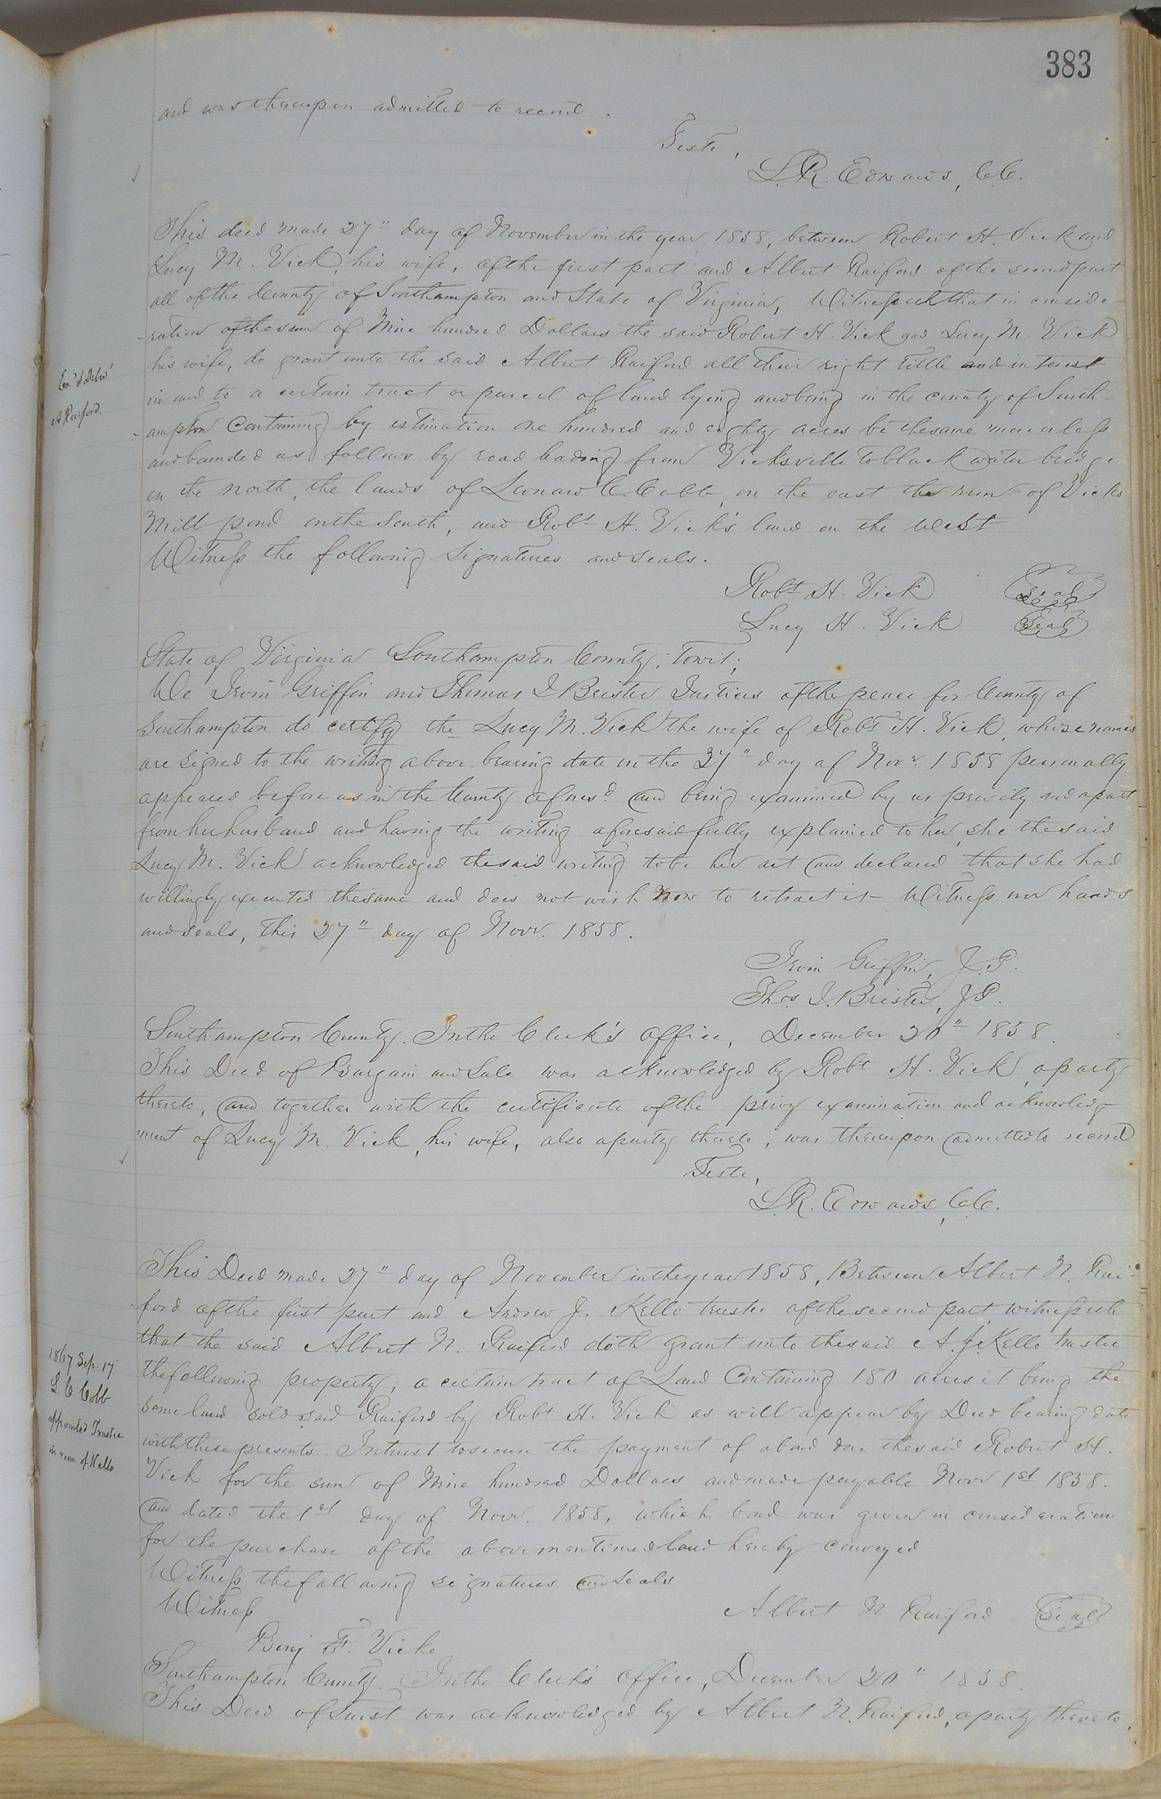 383
and was thereupon admitted to record.
Teste,
L. R. Edwards, C.C.
This deed made 27" day of November in the year 1858, between Robert H. Vick and
Lucy M. Vick, his wife, of the first part and Albert Raiford of the second part
all of the County of Southampton and State of Virginia, Witnesseth that in conside-
-ration of the sum of Nine hundred Dollars the said Robert H. Vick and Lucy M. Vick
his wife, do grant unto the said Albert Raiford all their right title and interest
Ex'd & Deld'
in and to a certain tract or parcel of land lying and being in the county of South-
A. Raiford.
-ampton Containing by estimation one hundred and eighty acres be the same more or less
and bounded as follows by road leading from Vicksville to black water bridge
on the north, the lands of Leonard C. Cobb, on the east the run of Vicks
Mill pond on the South, and Robt H. Vick's land on the West
Witness the following Signatures and seals.
Robt H. Vick Seal
Lucy H. Vick Seal
State of Virginia Southampton County, Towit;
We Irvin Griffin and Thomas I. Brister Justices of the peace for County of
Southampton do certify the Lucy M. Vick the wife of Robt H. Vick, whose names
are signed to the writing above bearing date on the 27" day of Novr. 1858 personally
appeared before us in the County afores'd and being examined by us privily and apart
from her husband and having the writing aforesaid fully explained to her, she the said
Lucy M. Vick acknowledged the said writing to be her act and declared that she had
willingly executed the same and does not wish now to retract it Witness our hands
and seals, this 27" day of Novr. 1858.
Irvin Griffin, J.P.
Thos. I. Brister, J.P.
Southampton County. In the Clerk's office, December 20" 1858.
This Deed of Bargain and Sale was acknowledged by Robt H. Vick, a party
thereto, and together with the certificate of the privy examination and acknowledg-
ment of Lucy M. Vick, his wife, also a party thereto, was thereupon admitted to record
Teste,
L. R. Edwards, C.C.
This Deed made 27" day of November in the year 1858, Between Albert N. Rai-
-ford of the first part and Andrew J. Kello trustee of the second part witnesseth
that the said Albert N. Raiford doth grant unto the said A. J. Kello trustee
1867 Sep. 17
the following property; a certain tract of Land Containing 180 acres it being the
L C Cobb
same land sold said Raiford by Robt H. Vick as will appear by Deed bearing date
appointed Trustee
with these presents. In trust to secure the payment of a bond due the said Robert H.
in room of Kello
Vick for the sum of Nine hundred Dollars and made payable Novr 1st 1858.
and dated the 1st day of Novr. 1858, which bond was given in consideration
for the purchase of the above mentioned land hereby conveyed
Witness the following signatures and seals
Witness Albert N Raiford Seal
Benj F. Vicke
Southampton County. In the Clerk's office, December 20" 1858.
This Deed of Trust was acknowledged by Albert N. Raiford, a party thereto,